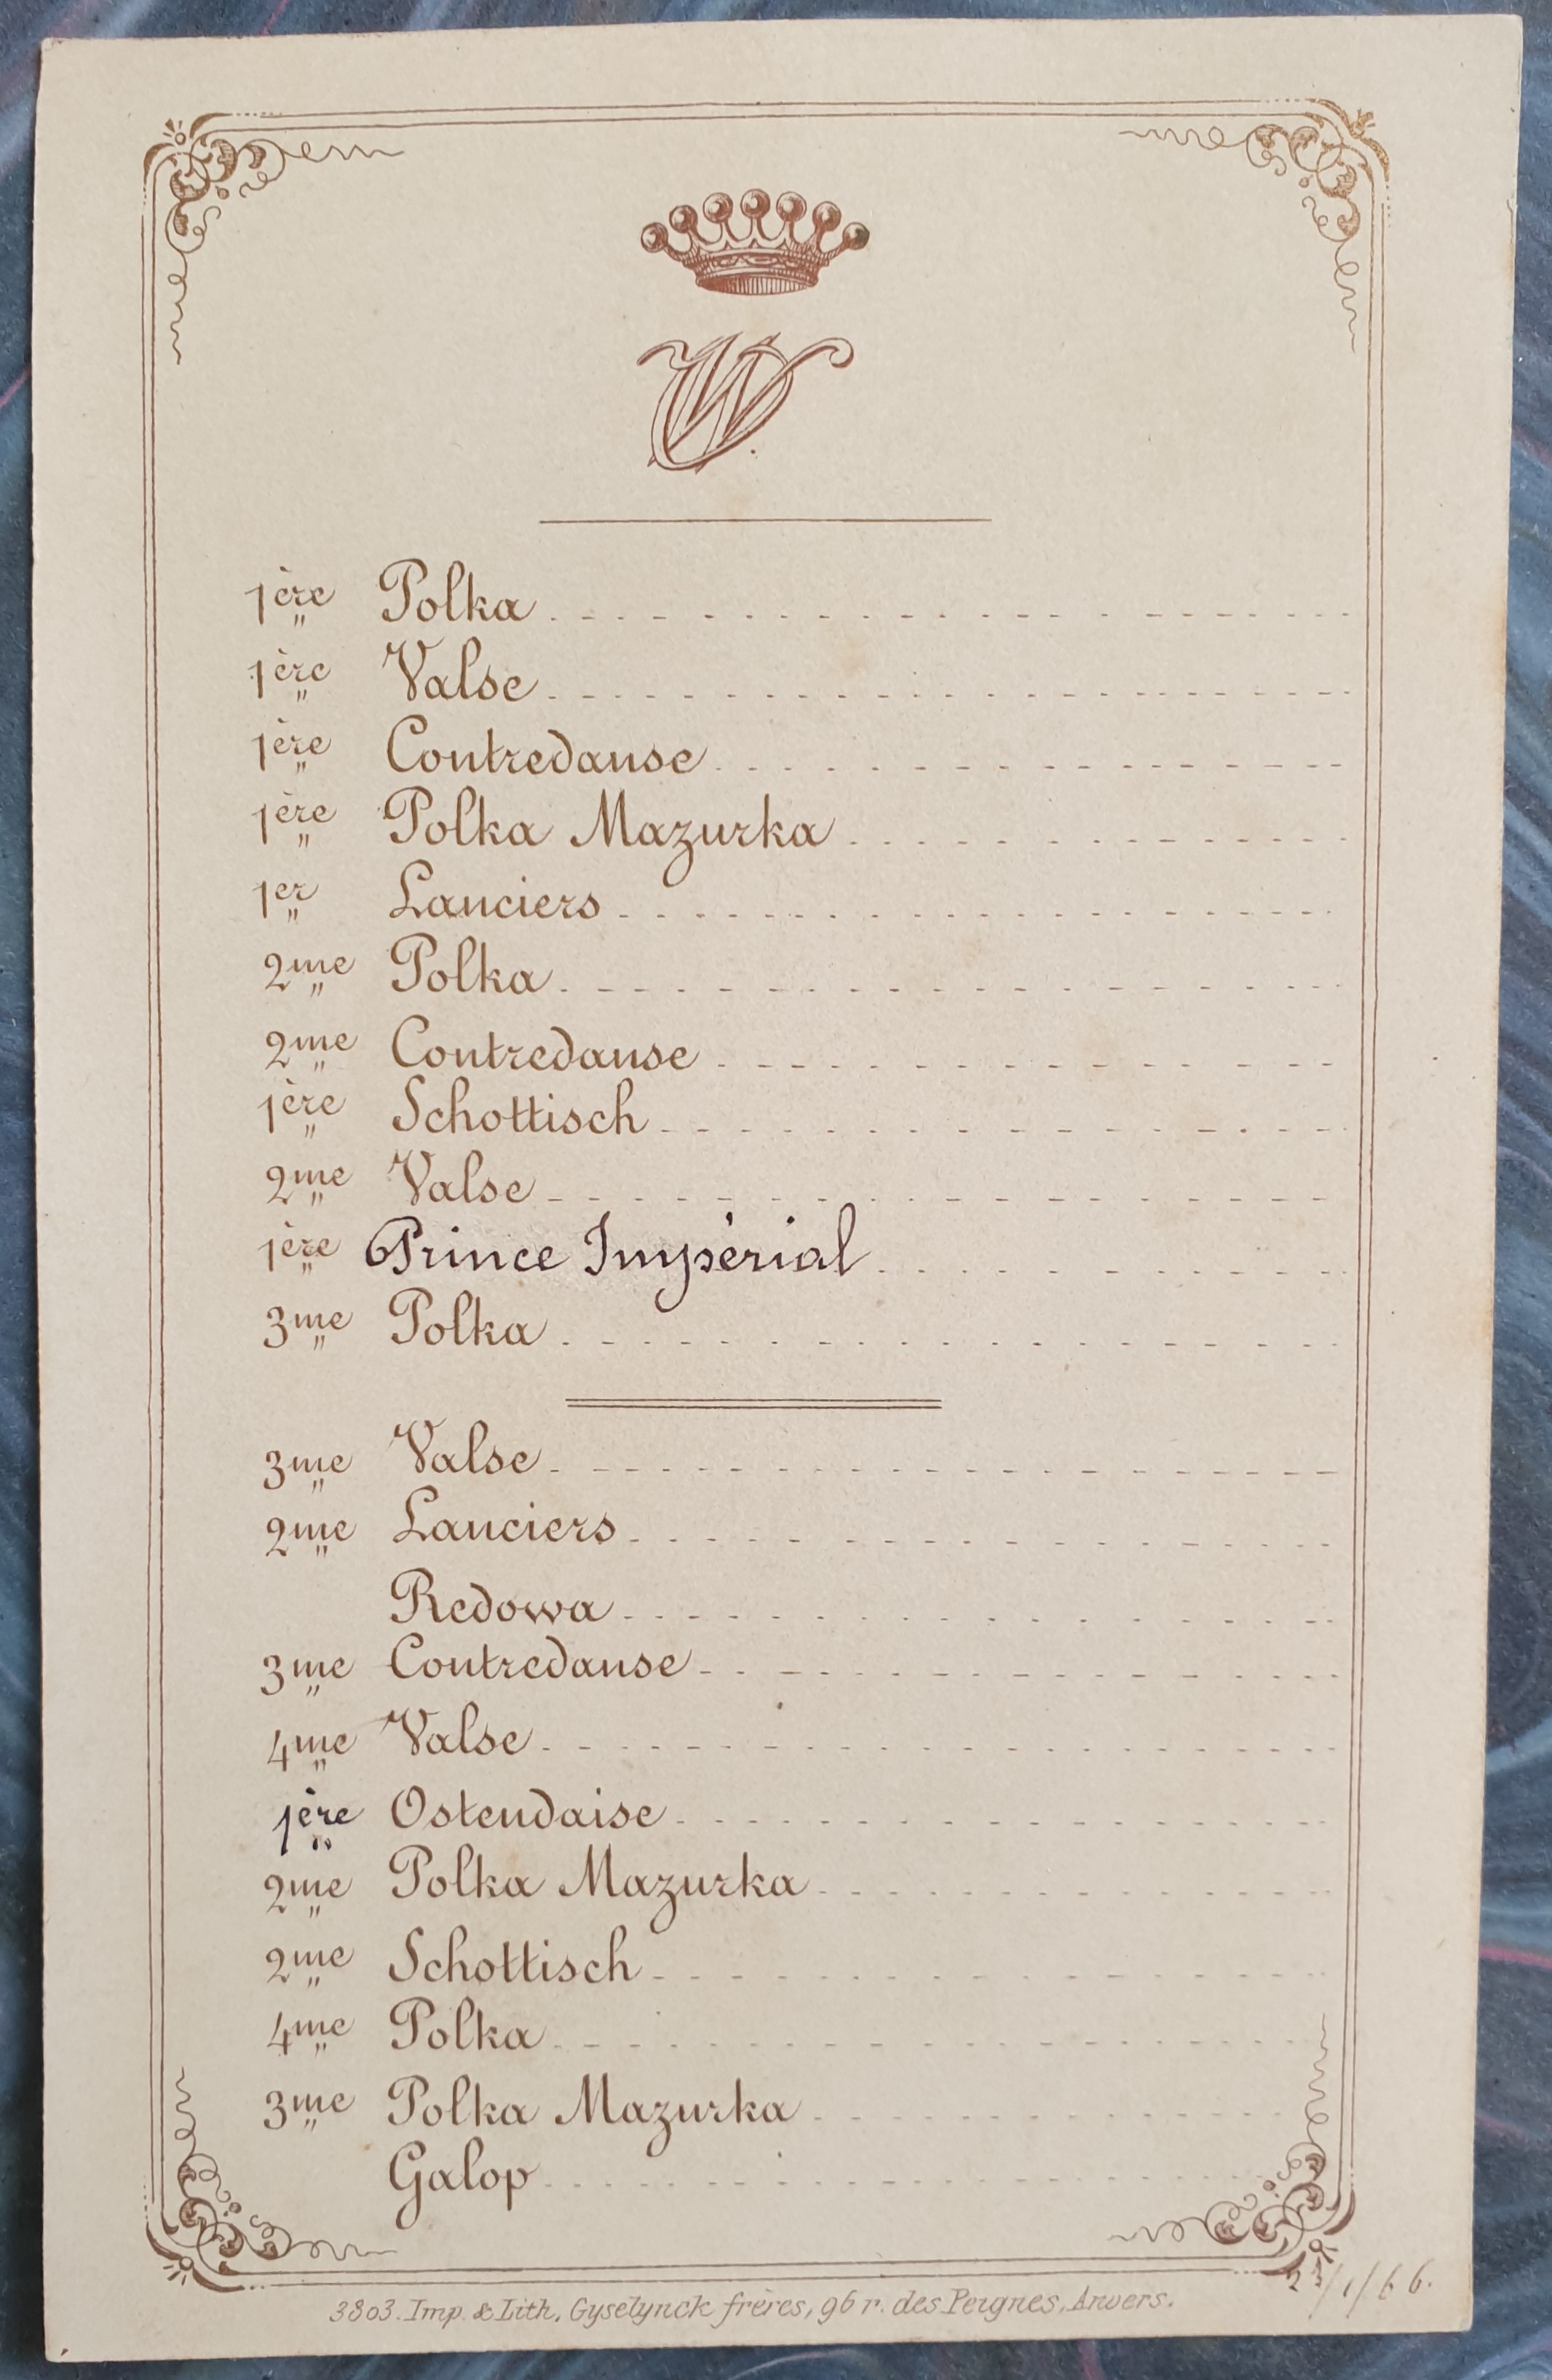 W
1ère Polka
1ère Valse
1ère Contredanse
1ère Polka Mazurka
1er Lanciers
2me Polka
2me Contredanse
1ère Schottisch
2me Valse
1ère Prince Impérial
3me Polka
3me Valse
2me Lanciers
Redowa
3me Contredanse
4me Valse
1ère Ostendaise
2me Polka Mazurka
2me Schottisch
4me Polka
3me Polka Mazurka
Galop
3803. Imp. & Lith, Gyselynck frères, 96 r. des Peignes, Anvers.